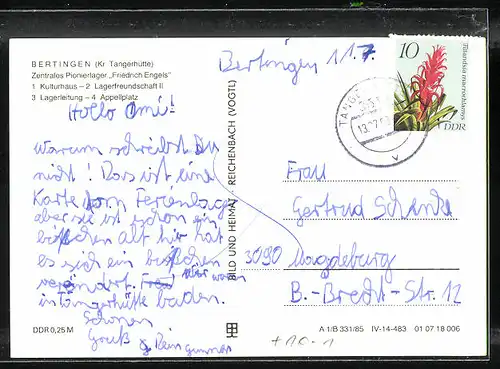 BERTINGEN (Kr Tangerhütte)
Zentrales Pionierlager „Friedrich Engels"
1 Kulturhaus – 2 Lagerfreundschaft II
3 Lagerleitung – 4 Appellplatz
Hallo Omi!
Warum schreibst Du
nicht! Das ist eine
Karte vom Ferienlager
aber sie ist schon ein
bißchen alt hier hat
es sich ein bißchen
verändert. wir waren
in Tangerhütte baden.
Schönen
Gruß
DDR 0,25 M
BILD UND HEIMAT · REICHENBACH (VOGTL)
Bertingen 11.7.
10
Tillandsia macrochlamys
DDR
Frau
Gertrud
3090 Magdeburg
B.-Brecht-Str. 12
A 1/B 331/85 IV-14-483 01 07 18 006